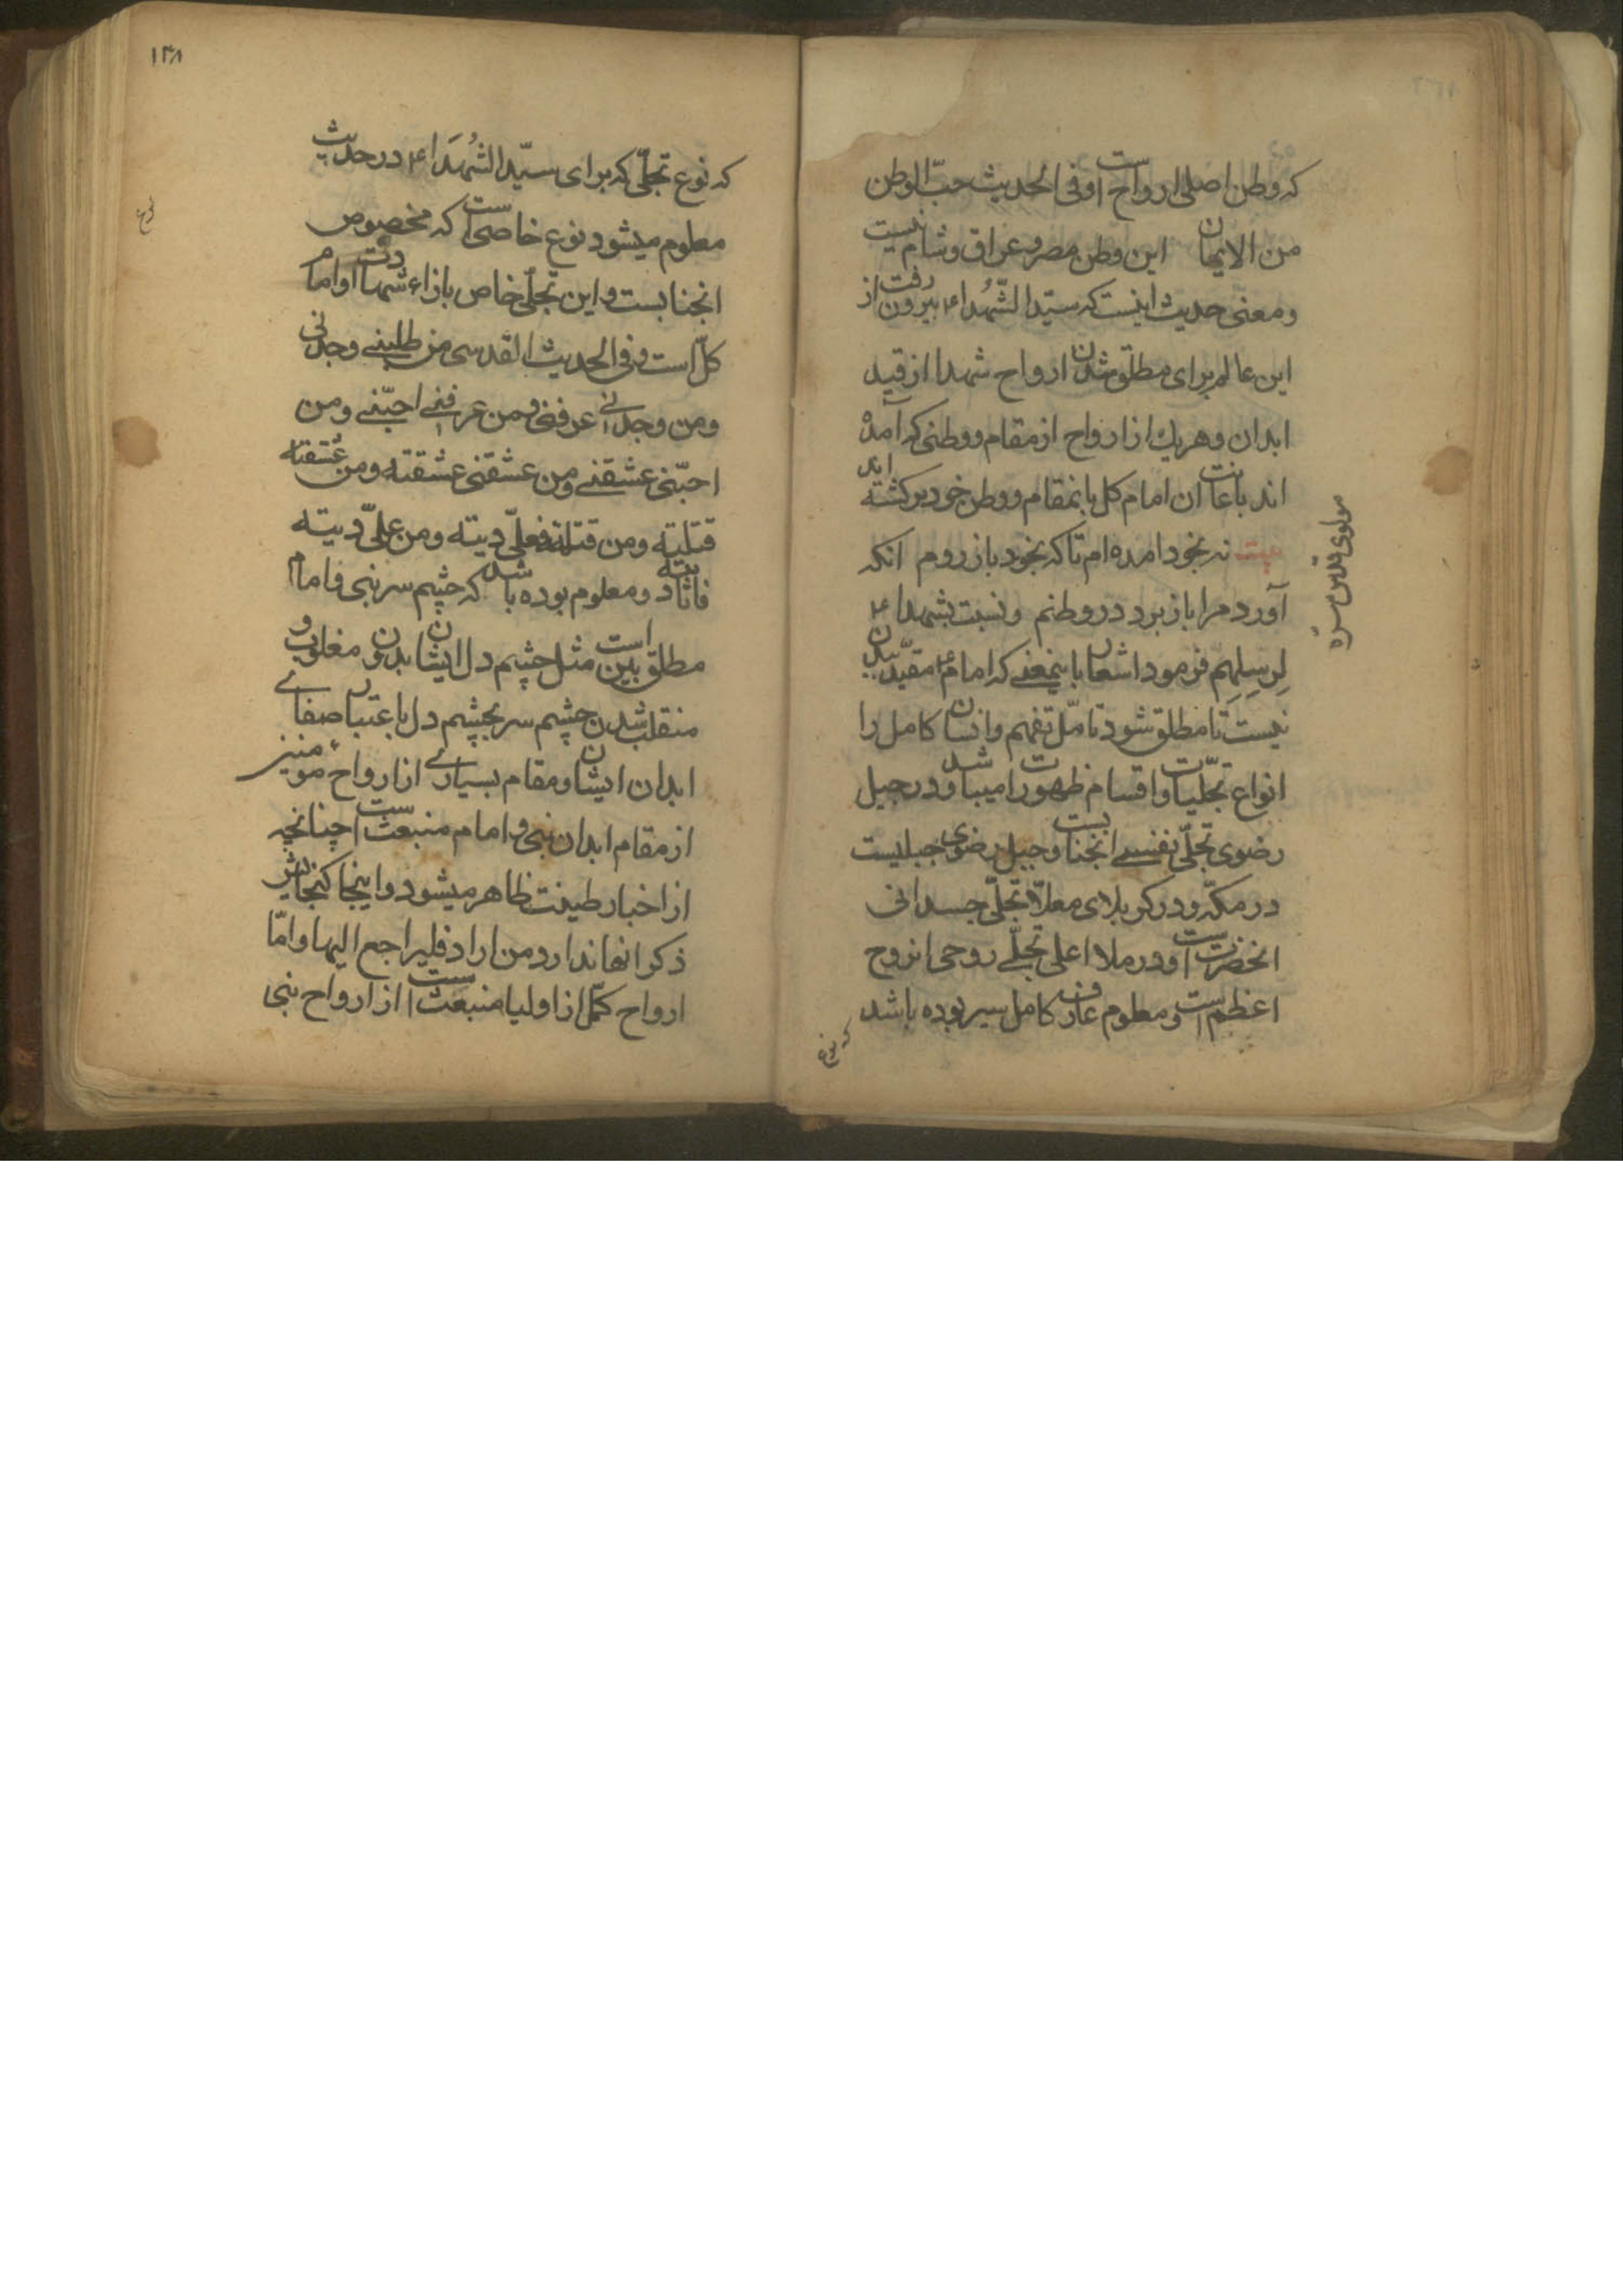 که وطن اصلی ارواح است و فی الحدیث حبّ الوطن
من الایمان این وطن مصر و عراق و شام نیست
و معنی حدیث اینست که سیّد الشّهُداء ع بیرون رفت از
این عالم برای مطلق شدن ارواح شهدا از قید
ابدان و هر یک از ارواح از مقام و وطنی که آمده
اند باعانت ان امام کل بانمقام و وطن خود برکشته اند
بیت نه بخود امده ام تا که بخود باز روم انکه
آورد مرا باز برد در وطنم و نسبت بشهدا ع
فرمود اشعار باینمعنی که امام ع مقیّد ببدن
نیست تا مطلق شود تامّل تفهم و انسان کامل را
انواع تجلّیات و اقسام ظهورات میباشد و در جبل
رضوی تجلّی نفسی انجنابست و جبل رضوی جبلیست
در مکّه و در کربلای معلّا تجلّی جسدانی
انحضرتست و در ملا اعلی تجلّی روحی انروح
اعظم است و معلوم عارف کامل سیر بوده باشد
که نوع
مولوی قدس سره
۱۳۸
که نوع تجلّی که برای سیّد الشُهَداء ع در حدیث
معلوم میشود نوع خاصّی است که مخصوص
انجنابست و این تجلّی خاص بازاء شهادت او امام
کلّ است و فی الحدیث القدسی من طلبنی وجدنی
و من وجدنی عرفنی و من عرفنی احبّنی و من
احبّنی عشقنی و من عشقنی عشقته و من عشقته
قتلته و من قتلته فعلیّ دیته و من علیّ دیته
فانا دیته و معلوم بوده باشد که چشم سر نبی و امام
مطلق بین است مثل چشم دل ایشان بدون مغلوب و
منقلب شدن چشم سر بچشم دل باعتبار صفای
ابدان ایشان و مقام بسیاری از ارواح مؤمنین
از مقام ابدان نبی و امام منبعث است چنانچه
از اخبار طینت ظاهر میشود و اینجا کنجایش
ذکر انها ندارد و من اراد فلیراجع الیها و امّا
ارواح کمّل از اولیا منبعث است از ارواح نبی
نوع